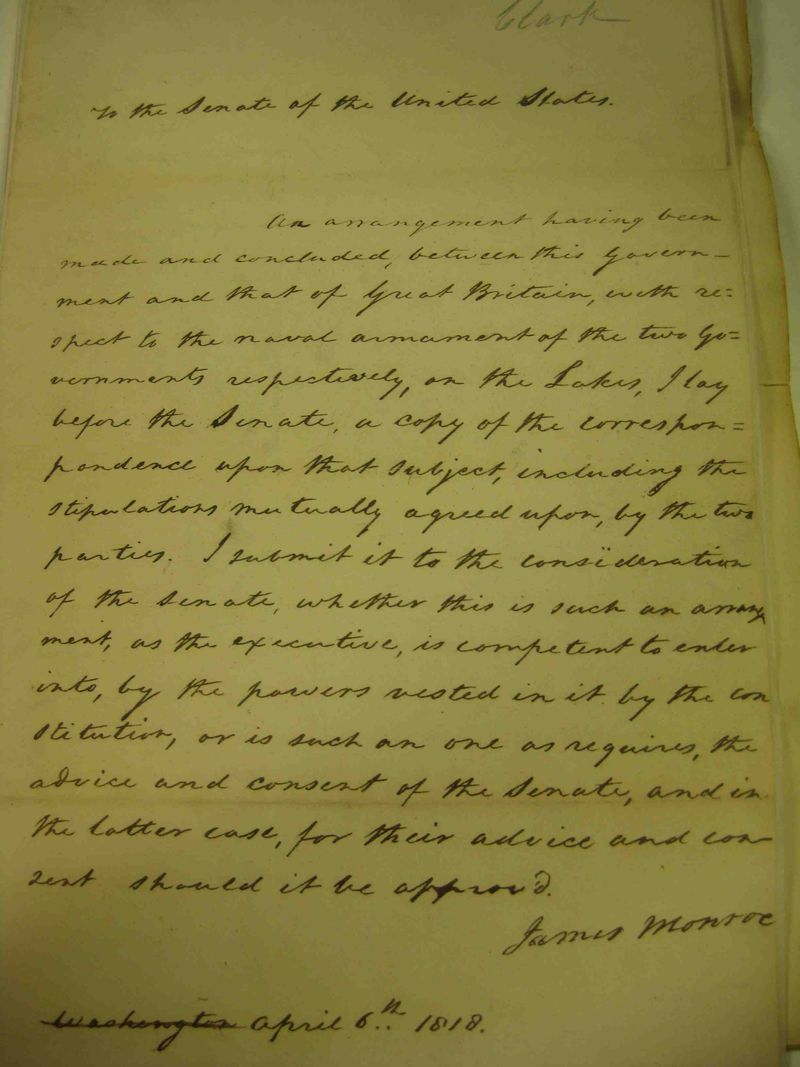 Clark
To the Senate of the United States.
An arrangement having been
made and concluded, between this Govern-
ment and that of Great Britain, with re=
spect to the naval armament of the two Go=
vernments respectively, on the Lakes, I lay
before the Senate, a copy of the correspon=
pondence upon that subject, including the
stipulations mutually agreed upon, by the two
parties. I submit it to the consideration
of the Senate, whether this is such an arrange
ment, as the executive, is competent to enter
into, by the powers vested in it by the con
stitution, or is such an one as requires, the
advice and consent of the Senate, and in
the latter case, for their advice and con-
sent should it be approv'd.
James Monroe
Washington April 6th 1818.